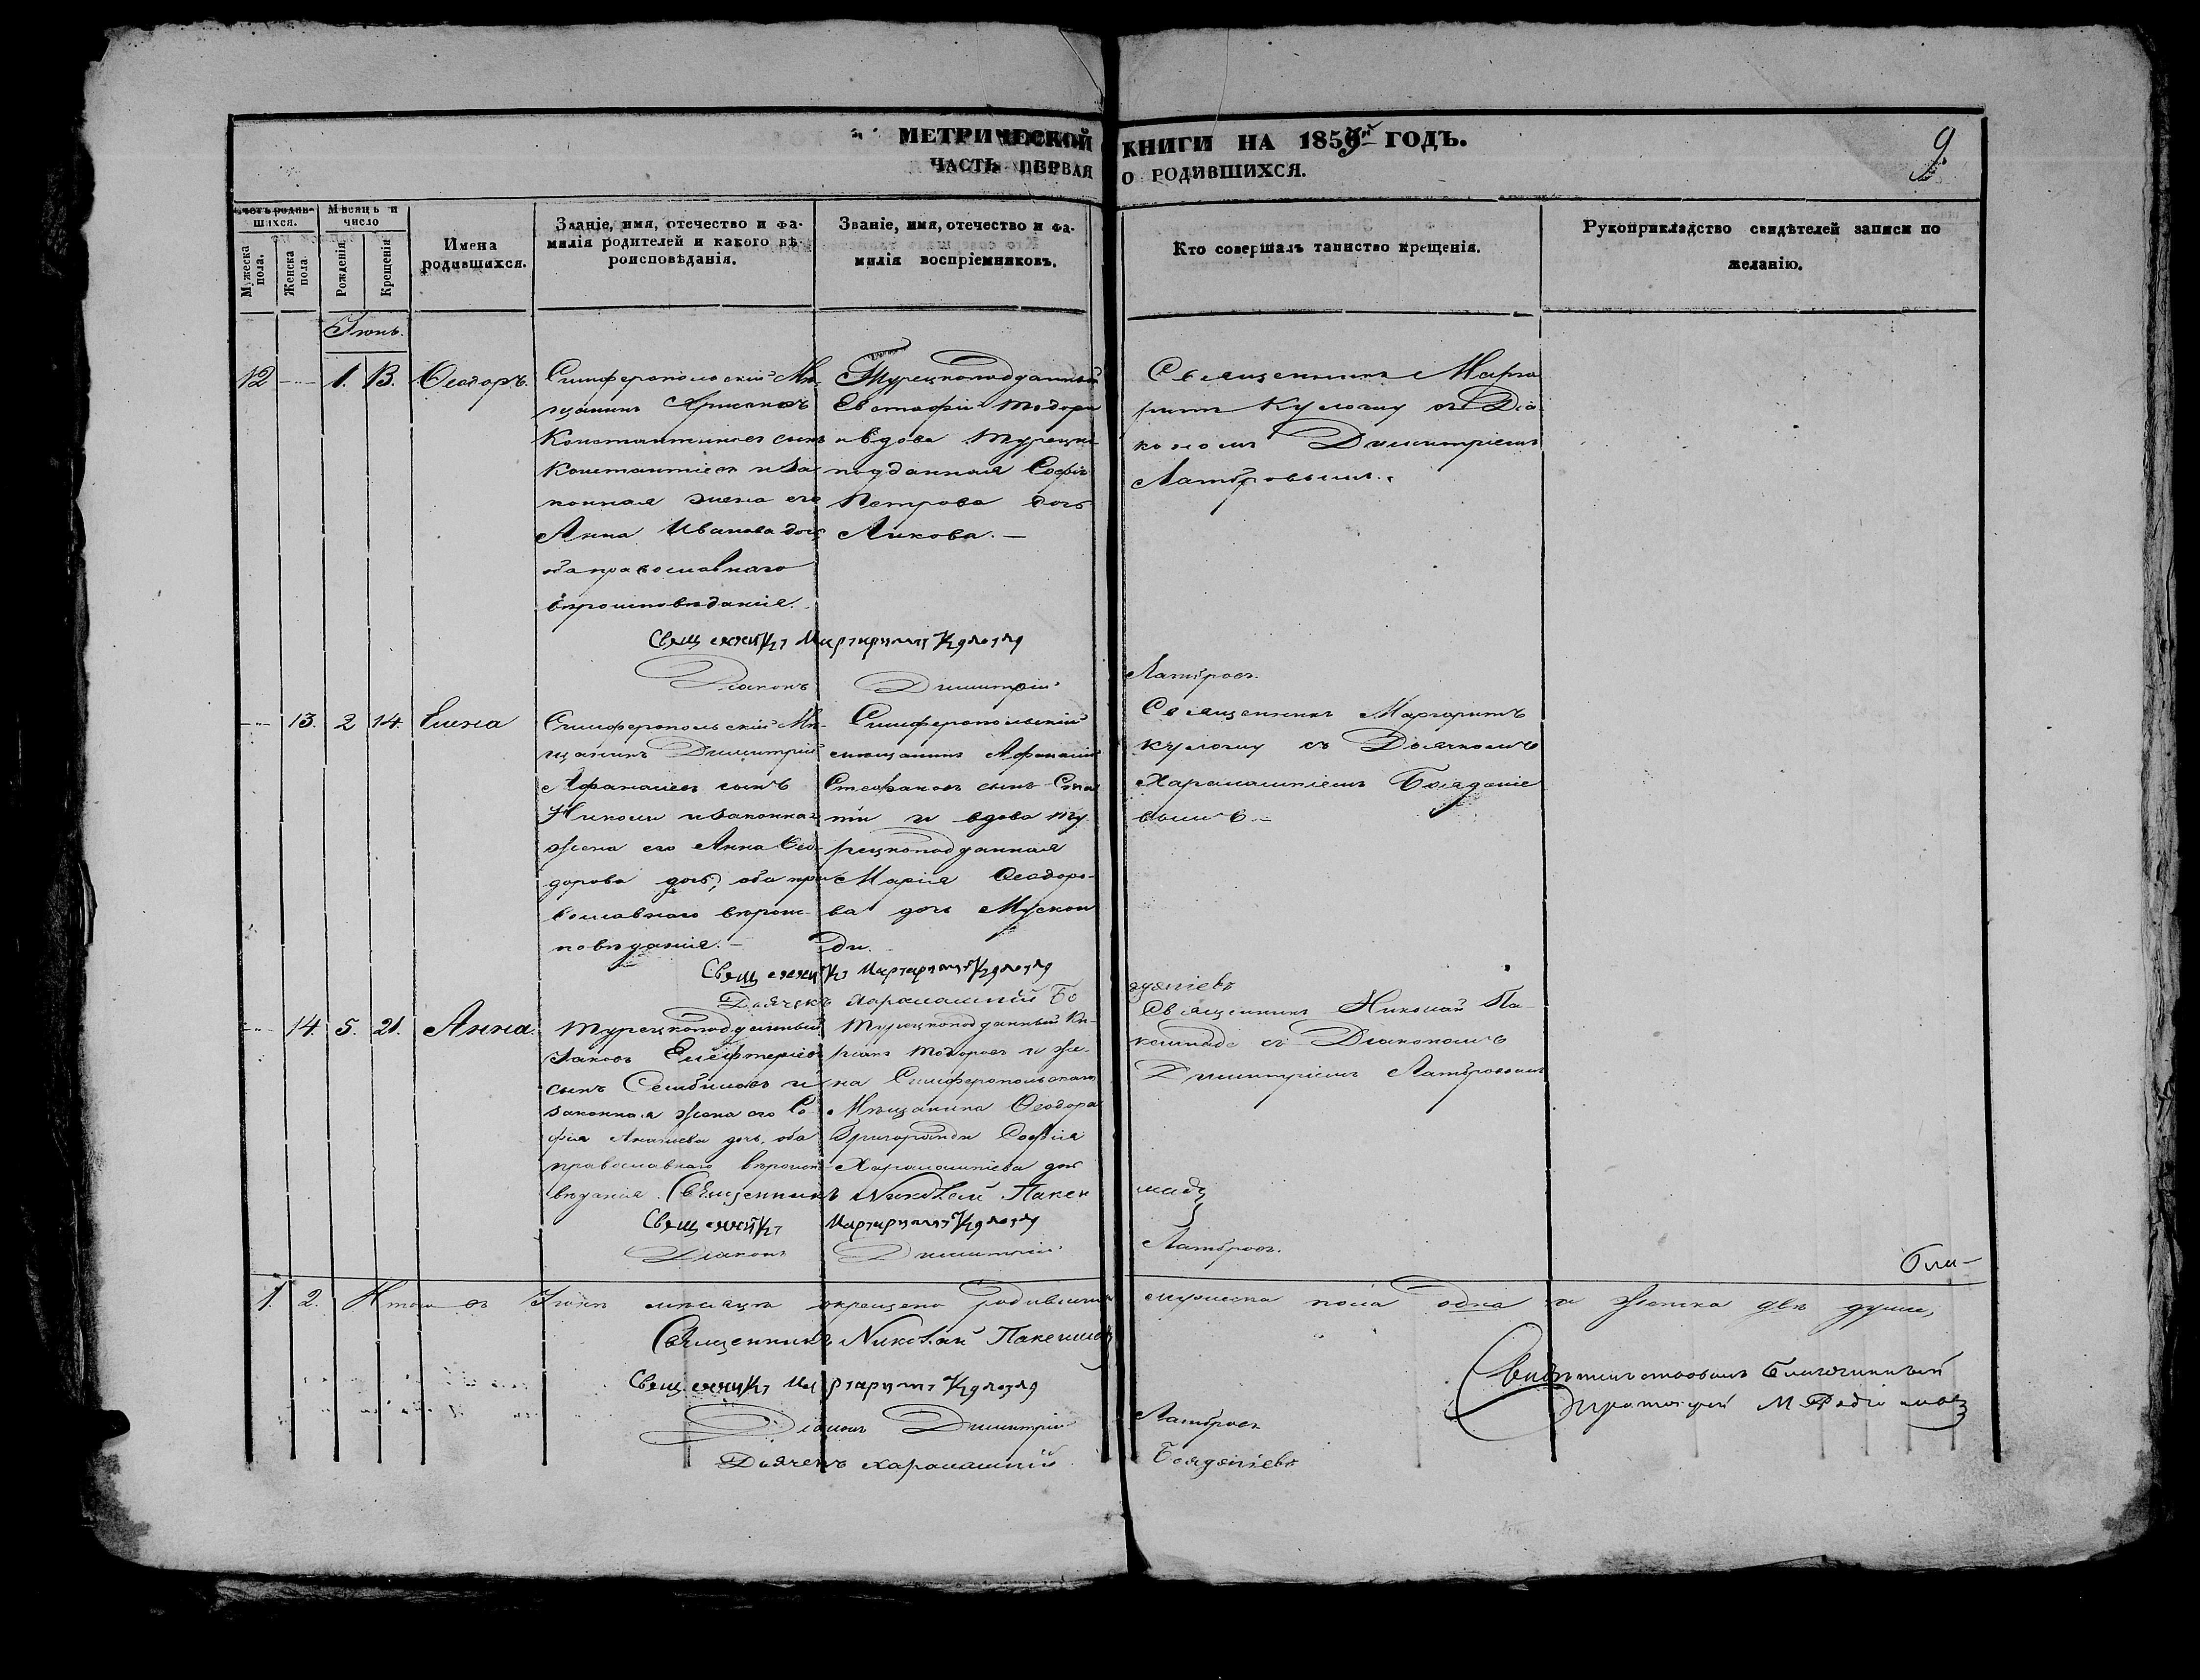 МЕТРИЧЕСКОЙ КНИГИ НА 1859й ГОДЪ.
ЧАСТЬ ПЕРВАЯ О РОДИВШИХСЯ.
9.
Счетъ родив-
шихся.
Мужеска пола.
Женска пола.
Мѣсяцъ и
число
Рожденія
Крещенія
Имена
родившихся.
Званіе, имя, отечество и фа-
милія родителей и какого вѣ-
роисповѣданія.
Званіе, имя, отечество и фа-
милія воспріемниковъ.
Кто совершалъ таинство крещенія.
Рукоприкладство свидѣтелей записи по
желанію.
Іюнь.
12 1. 13. Ѳеодоръ.
Симферопольскій Мѣ-
щанинъ
Константиновъ сынъ
и за-
конная жена его
Анна Иванова дочь
оба православнаго
вѣроисповѣданія.
Турецкоподданный
Евстафій Тодори
и вдова Турецко
подданная Софія
Петрова дочь
Ликова. —
Священникъ Марга
ритъ съ Діа
кономъ Димитріемъ
Ламбровымъ.
Священникъ Маргаритъ
Діаконъ Димитрій Ламбровъ.
13. 2 14. Елена
Симферопольскій Мѣ-
щанинъ Димитрій
Афанасіевъ сынъ
и законная
жена его Анна Ѳео-
дорова дочь, оба пра
вославнаго вѣроис-
повѣданія. —
Симферопольскій
мещанинъ Афанасій
Стефановъ сынъ
и вдова ту
рецкоподданная
Марія Ѳеодоро-
ва дочь Мускон
ди.
Священникъ Маргаритъ
съ Дьячкомъ
Харалампіемъ
вымъ. —
Священникъ Маргаритъ
Дьячекъ Харалампій
14. 5. 21. Анна.
Турецкоподданный
Елефтеріевъ
сынъ и
законная жена его Со
фія дочь, оба
православнаго вѣроиспо
вѣданія.
Турецкоподданный Ки-
Тодоровъ и же-
на Симферопольскаго
Мѣщанина Ѳеодора
Григориади Софія
Харалампіева дочь
Священникъ Николай Па-
съ Діакономъ
Димитріемъ Ламбровымъ
Священникъ Николай
Священникъ Маргаритъ
Діаконъ Димитрій Ламбровъ.
1. 2. Итого въ Іюнѣ мѣсяцѣ окрещено родившихся мужеска пола одна и женска двѣ души,
Священникъ Николай
Священникъ Маргаритъ
Діаконъ Димитрій Ламбровъ
Дьячекъ Харалампій
Свидѣтельствовалъ Благочинный
Протоіерей М. Родіоновъ